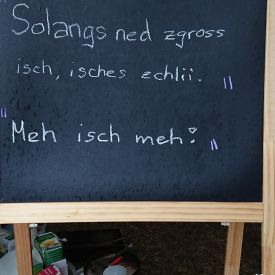 Solangs ned zgross
isch, isches zchlii. "
" Meh isch meh! "